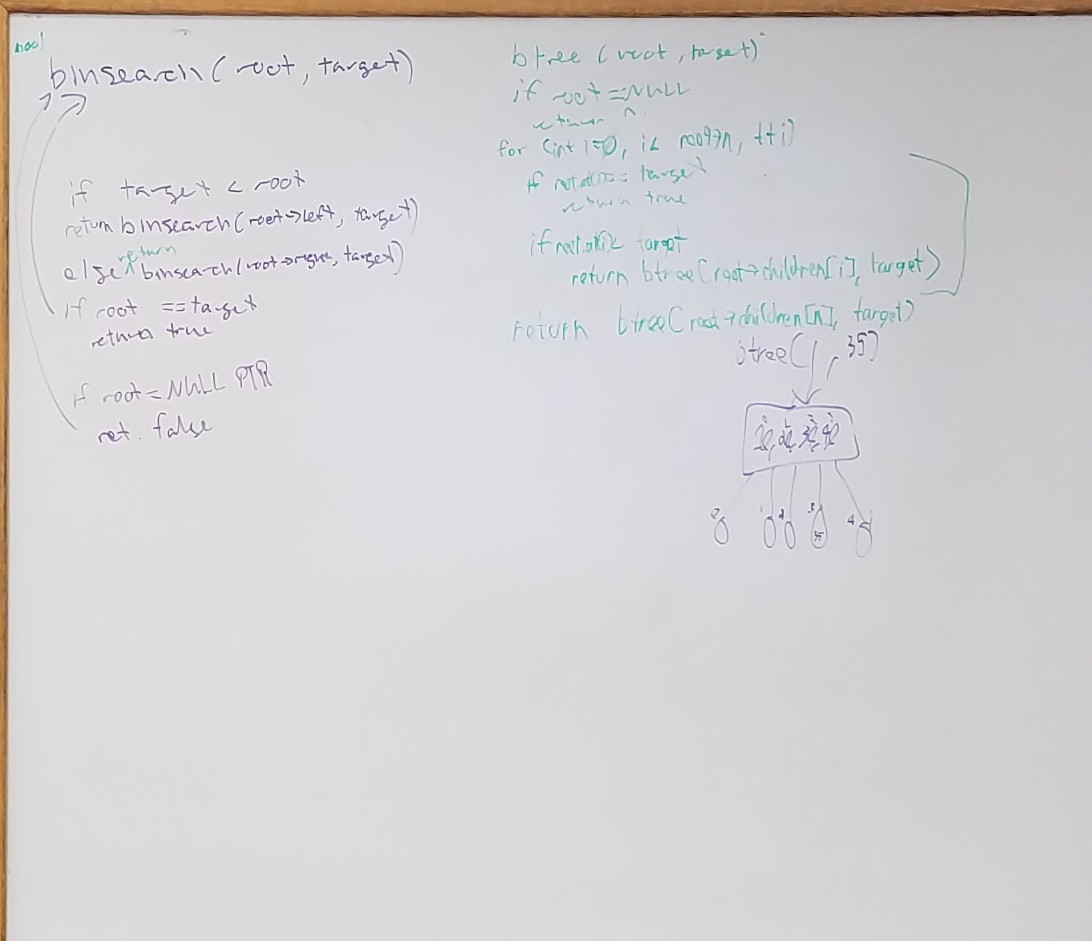 bool
binsearch(root, target)
if target < root
return binsearch(root->left, target)
else return binsearch(root->right, target)
if root == target
return true
if root = NULL PTR
ret. false
btree (root, target)
if root == NULL
return
for (int i=0, i< root->n, ++i)
if target
return true
if target
return btree(root->children[i], target)
return btree(root->children[n], target)
btree( , 35)
0 1 2 3 4
35